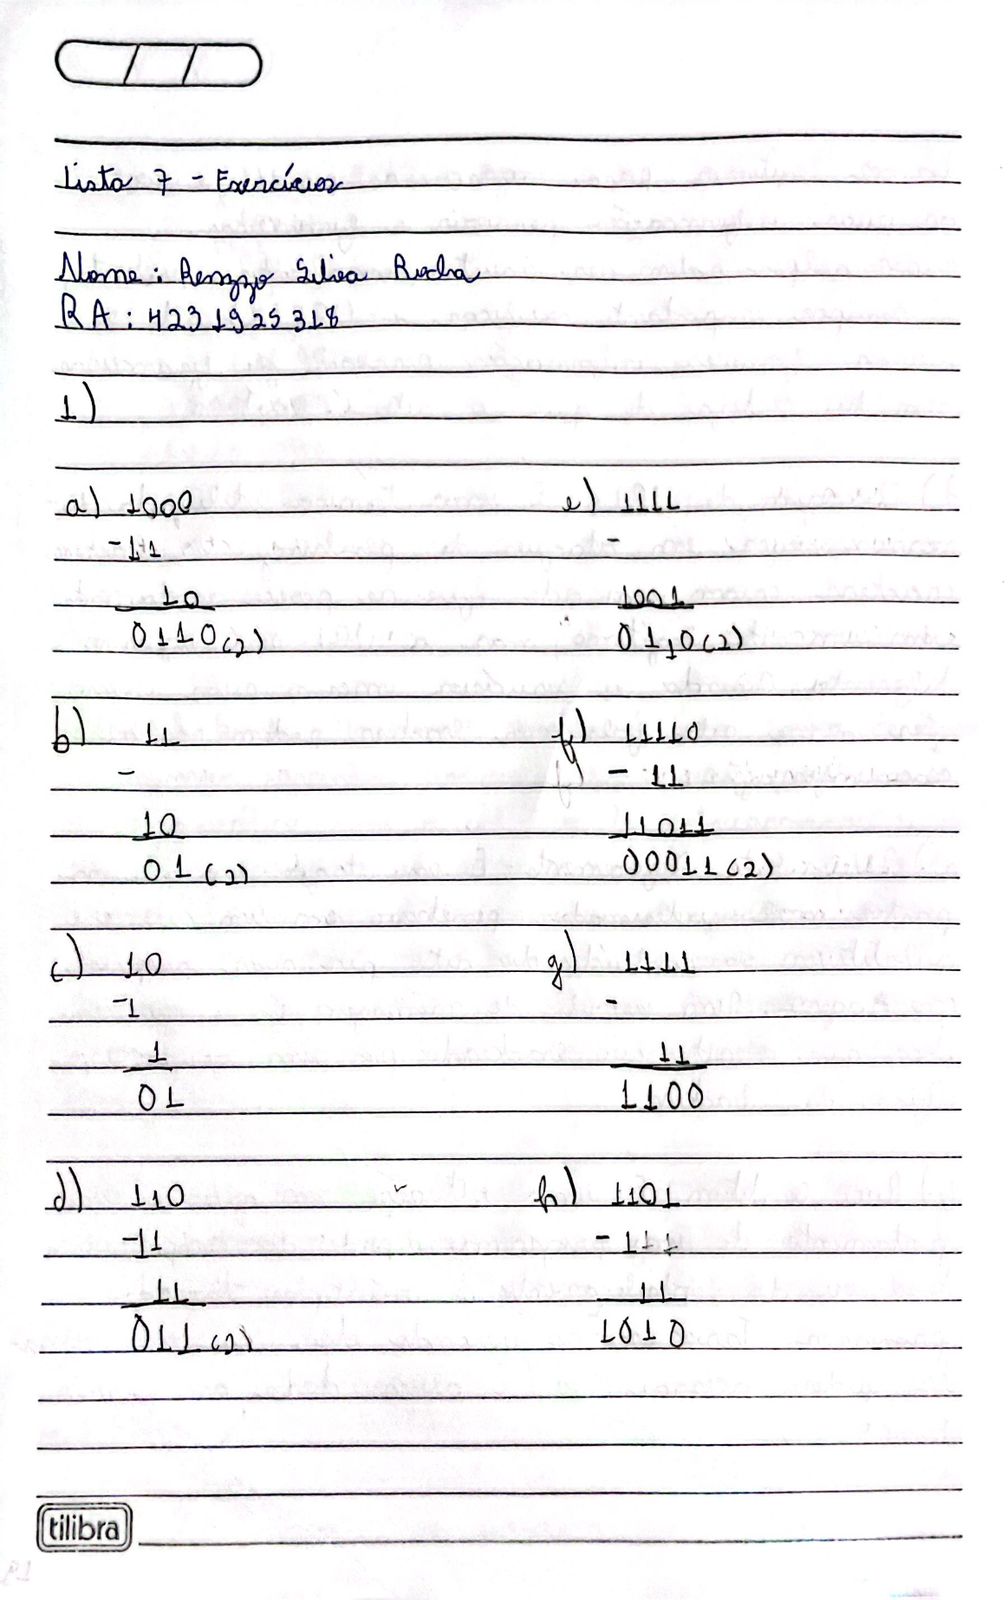 Lista 7 - Exercícios
Nome: Renzzo Silva Rocha
RA: 4231925318
1)
a) 1000
-11
10
0110(2)
b) 11
-
10
01(2)
c) 10
-1
1
01
d) 110
-11
11
011(2)
e) 1111
-
1001
0110(2)
f) 11110
- 11
11011
00011(2)
g) 1111
-
11
1100
h) 1101
- 111
11
1010
tilibra